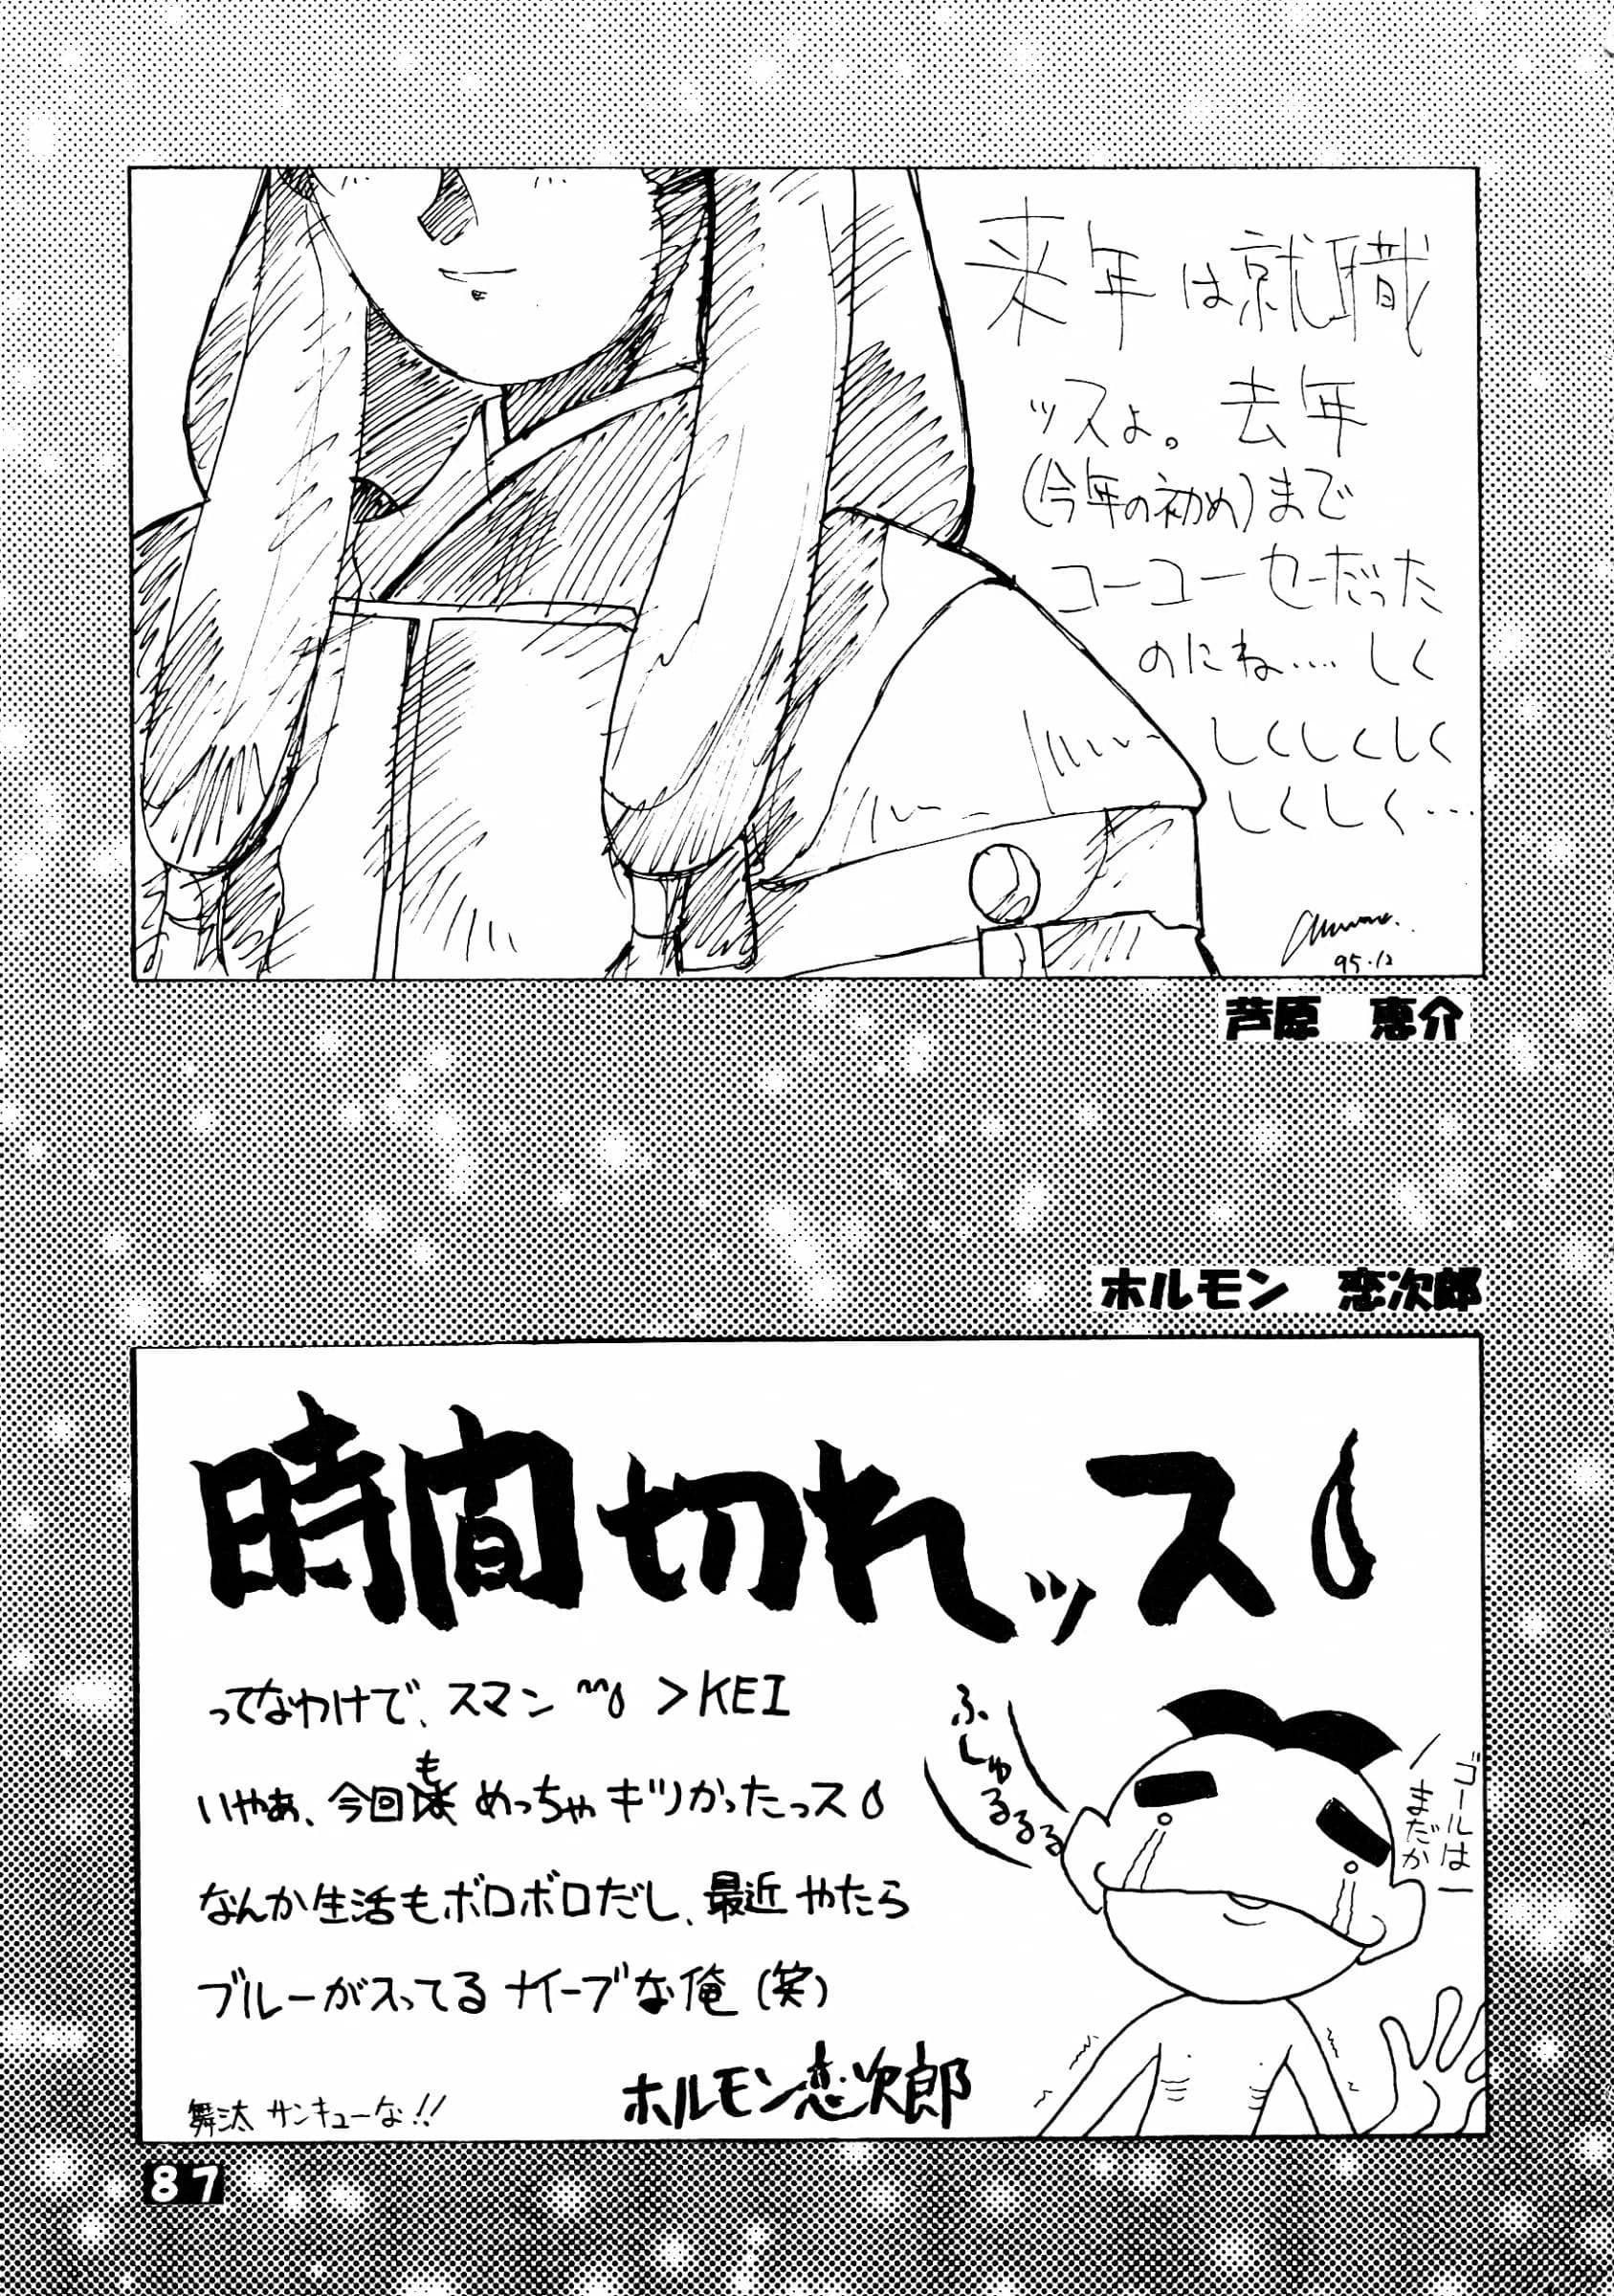 来年は就職
ッスよ。去年
(今年の初め)まで
コーコーセーだった
のにね‥‥しく
しくしくしく
しくしく…
95.12
芦原 恵介
ホルモン 恋次郎
時間切れッス
ってなわけで、スマン >KEI
いやあ、今回も めっちゃギリかったっス
なんか生活もボロボロだし、最近やたら
ブルーがスってるナイーブな俺(笑)
ホルモン恋次郎
舞汰 サンキューな!!
ふしゅるるるる
ゴールは
まだかー
87